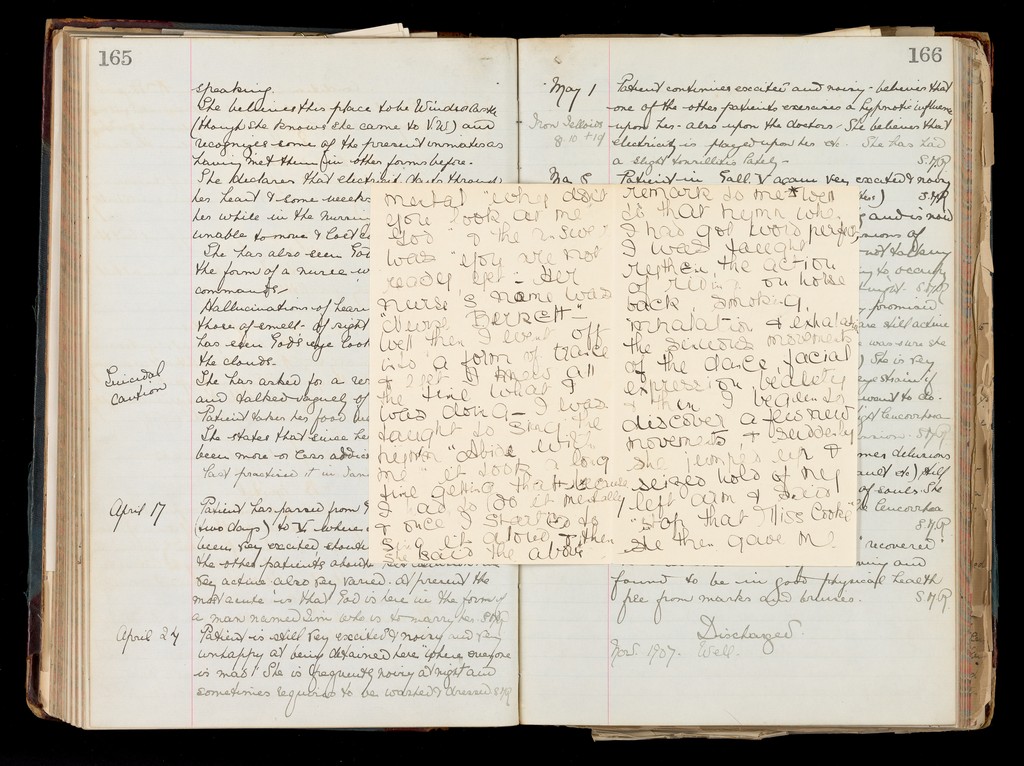 165
speaking.
She believes this place to be Windsor Castle
(though she knows she came to V.W.) and
recognizes some of the present inmates as
having met them in other forms before.
She declares that electricity darts through
her heart & some weeks
her while in the nursing
unable to move & lost
She has also seen God
the form of a nurse
commands.
Hallucinations of hear
those of smell - of sight
has seen God's eye look
the clouds.
Suicidal
caution
She has asked for a
and talked vaguely of
Patient takes her food
She states that since he
been more or less addic
last practised it in Jan
April 17
Patient has passed from
(two days) to V. where
been very excited shout
the other patients about
very active also very varied. At present the
most acute is that God is here in the form of
a man named Jim who is to marry her.
April 24
Patient is still very excited & noisy and very
unhappy at being detained here "where everyone
is mad". She is frequently noisy at night and
sometimes requires to be washed & dressed
mental "why don't
you look at me
God" & the answer
was "you are not
ready yet - Her
nurse's name was
"Nurse Burkett" -
well then I went off
into a form of trance
& yet I knew all
the time what I
was doing - I was
taught to sing the
hymn "Abide with
me" it took a long
time getting that because
I had to do it mentally
& once I started to
sing it aloud & then
she said the above
remark to me * well
to that hymn when
I had got word perfect
I was taught
rythem the action
of riding on horse
back, smoking,
inhalation & exhalation
the sinuous movements
of the dance, facial
expression, beauty
& then I began to
discover a few new
movements, & suddenly
she jumped up &
seized hold of my
left arm & said
"stop that Miss Cooke"
she then gave me
166
May 1
Patient continues excited and noisy - believes that
one of the other patients exercises a hypnotic influence
upon her - also upon the doctors. She believes that
electricity is played upon her etc. She has had
a slight tonsillitis lately -
May 8
Patient in Gall. V again very excited & noisy
and is now
sions of
not to
to occupy
night.
promised
are still active
was sure she
She is very
eye strain if
want to do.
leucorrhoea
mer delusions
still
of souls. She
leucorrhoea
"recovered"
and
found to be in good physical health
free from marks and bruises.
Discharged.
Nov. 1907. Well.